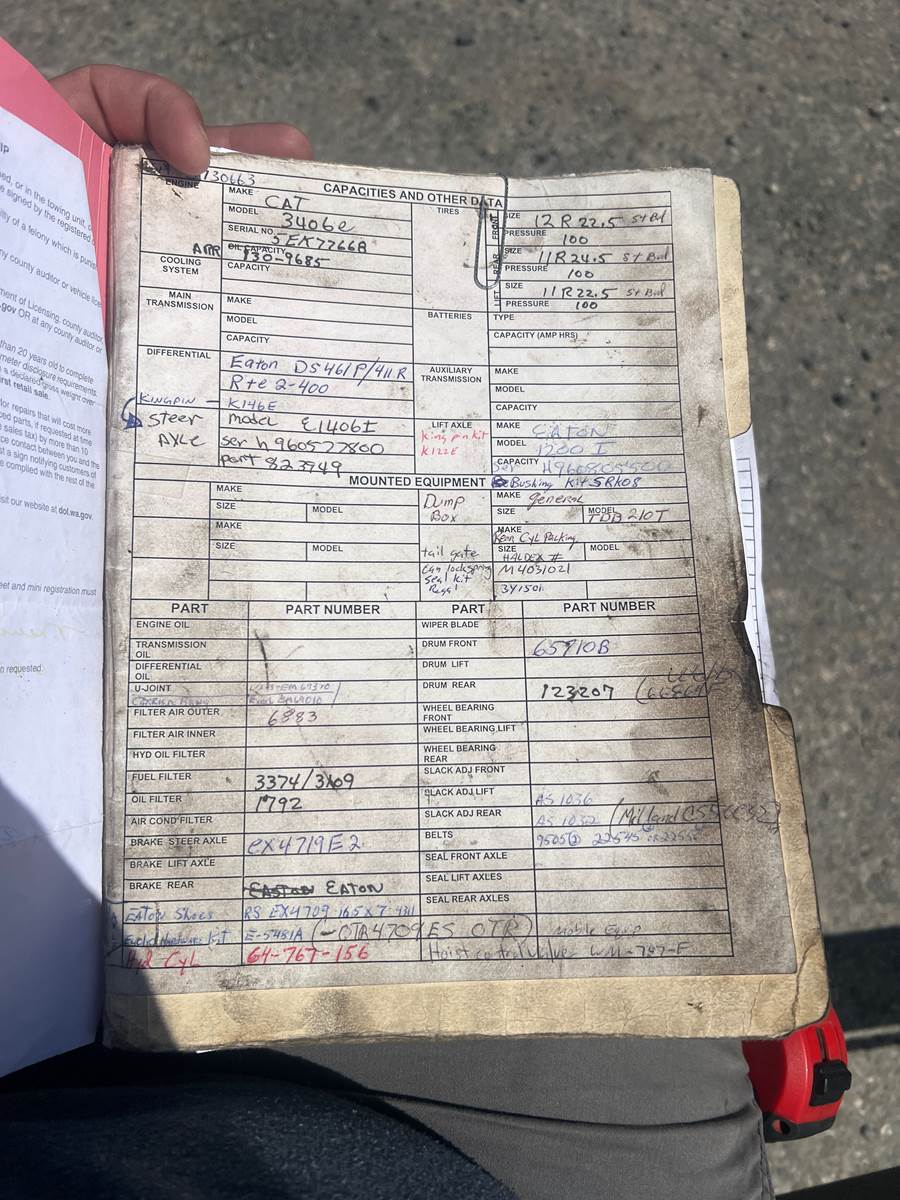 IP
ed, or in the towing unit,
e signed by the registered
ility of a felony which is
ny county auditor or vehicle
ment of Licensing, county auditor,
.gov OR at any county auditor or
than 20 years old to complete
meter disclosure requirements.
a declared gross weight over
first retail sale.
for repairs that will cost more
ced parts, if requested at time
sales tax) by more than 10
ce contact between you and the
t a sign notifying customers of
e complied with the rest of the
visit our website at dol.wa.gov.
eet and mini registration must
n requested.
730663
CAPACITIES AND OTHER DATA
ENGINE
MAKE CAT
MODEL 3406e
SERIAL NO. 5EX7766A
OIL CAPACITY
ARR 130-9685
TIRES
FRONT SIZE 12R22.5
PRESSURE 100
REAR SIZE 11R24.5
PRESSURE 100
LIFT SIZE 11R22.5
PRESSURE 100
COOLING SYSTEM
CAPACITY
MAIN TRANSMISSION
MAKE
MODEL
CAPACITY
BATTERIES
TYPE
CAPACITY (AMP HRS)
DIFFERENTIAL
Eaton DS461P/41R
Rte 2-400
AUXILIARY TRANSMISSION
MAKE
MODEL
CAPACITY
KINGPIN - K146E
Steer AXLE
model E1406I
ser h960577800
part 823749
LIFT AXLE
king pin kit
K122E
MAKE EATON
MODEL 1200 I
CAPACITY
ser H960805500
MOUNTED EQUIPMENT
Bushing Kit SRK08
MAKE
SIZE
MODEL
MAKE
SIZE
MODEL
Dump Box
MAKE general
SIZE
MODEL
210T
tail gate
MAKE
Cyl Packing
SIZE
HALDEX #
MODEL
seal kit
M4031021
PART
PART NUMBER
PART
PART NUMBER
ENGINE OIL
WIPER BLADE
TRANSMISSION OIL
DRUM FRONT 65910B
DIFFERENTIAL OIL
DRUM LIFT
U-JOINT
DRUM REAR 123207
FILTER AIR OUTER 6883
WHEEL BEARING FRONT
FILTER AIR INNER
WHEEL BEARING LIFT
HYD OIL FILTER
WHEEL BEARING REAR
FUEL FILTER 3374/3109
SLACK ADJ FRONT
OIL FILTER 1792
SLACK ADJ LIFT AS 1036
AIR COND FILTER
SLACK ADJ REAR AS 1032
BRAKE STEER AXLE ex4719E2
BELTS 9505 22545
BRAKE LIFT AXLE
SEAL FRONT AXLE
BRAKE REAR EATON
SEAL LIFT AXLES
EATON Shoes RS EX4709 165x7
SEAL REAR AXLES
Kit E-5481A (-OTR4709ES OTR) Mobile Equip
Hyd Cyl 64-767-156
Hoist control valve WM-747-F